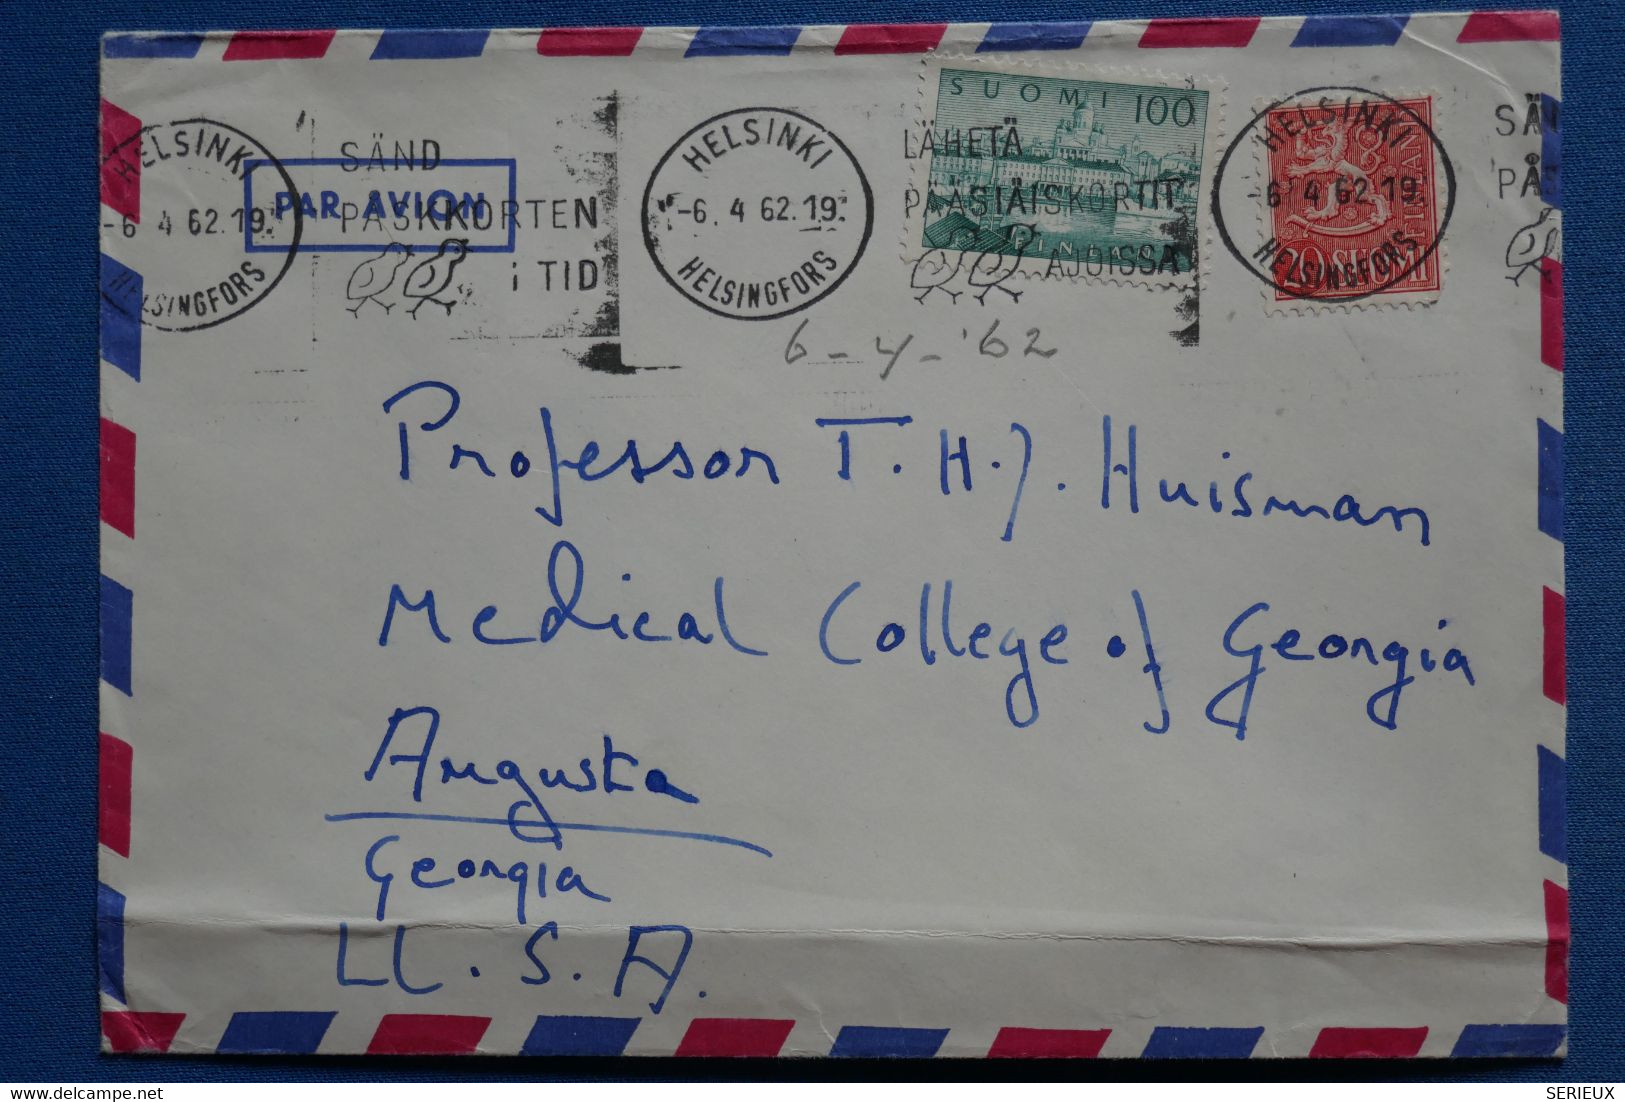 HELSINKI
-6. 4 62.19.
HELSINGFORS
PAR AVION
SÄND
PÅSKKORTEN
i TID
HELSINKI
-6. 4 62.19.
HELSINGFORS
SUOMI 100
FINLAND
LÄHETÄ
PÄÄSIÄISKORTIT
AJOISSA
HELSINKI
-6. 4 62.19.
HELSINGFORS
20 SUOMI
FINLAND
SÄ
PÅS
6-4-'62
Professor T.H.J. Huisman
Medical College of Georgia
Augusta
Georgia
U.S.A.
delcampe.net
SERIEUX